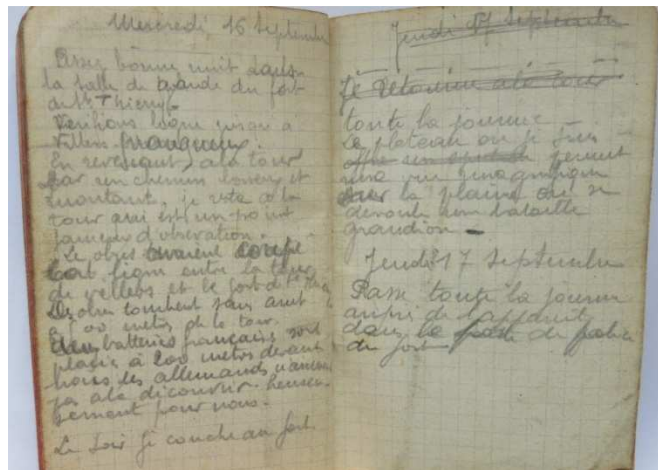 Mercredi 16 Septembre
Assez bonne nuit dans
la salle de garde du fort
de St Thierry.
Vérifions ligne jusqu'à
Villers Franqueux.
En revenant, à la tour
par un chemin boueux et
montant, je reste à la
tour qui est un point
fameux d'observation.
Le obus avaient coupé
la ligne entre la tour
de Villers et le fort de St Thierry
Des obus tombent sans arret
à 200 metres de la tour.
batteries françaises sont
placés à 200 metres devant
nous les allemands
pas à la découvrir heureu-
sement pour nous.
Le soir je couche au fort.
Jeudi 17 Septembre
Je retourne à la tour
toute la journée
Le plateau ou je suis
permet
une vue magnifique
sur la plaine ou se
deroule une bataille
grandiose
Jeudi 17 Septembre
Passe toute la journée
auprès de l'appareil
dans le poste de police
du fort